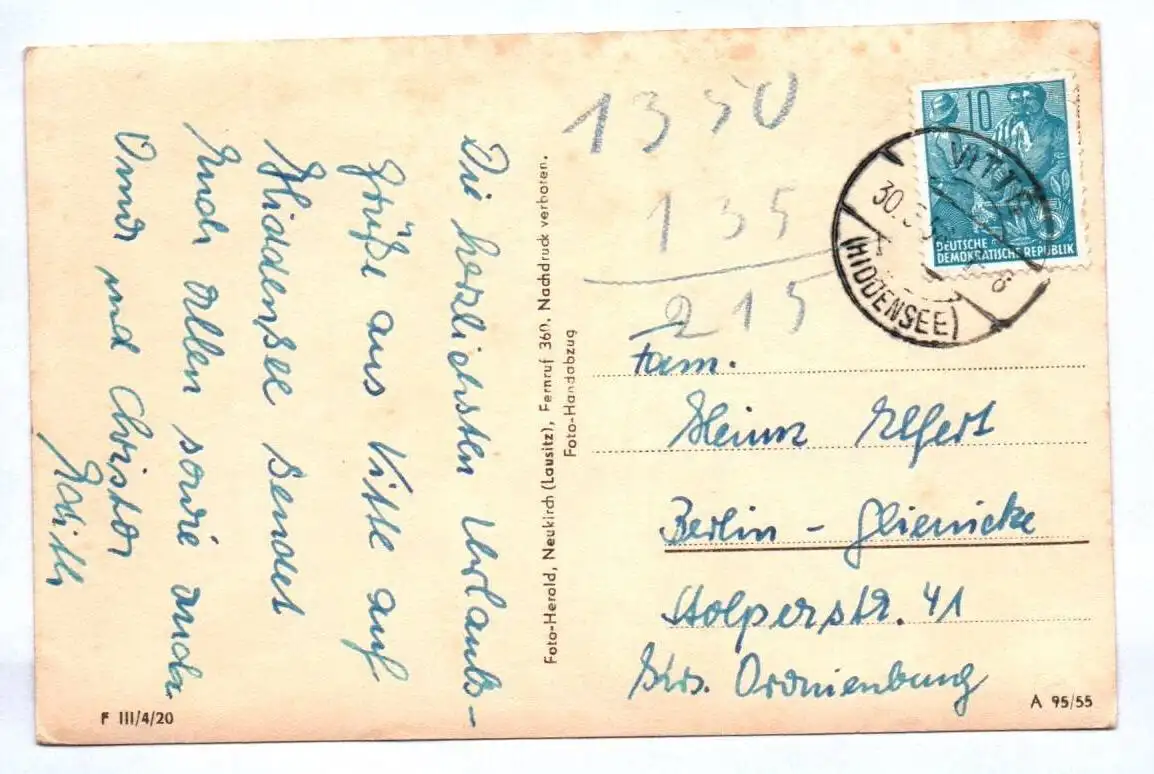 Die herzlichsten Urlaubs-
grüße aus Vitte auf
Hiddensee sendet
Euch allen sowie auch
Omi und Christa
Edith
Foto-Herold, Neukirch (Lausitz), Fernruf 360. Nachdruck verboten.
Foto-Handabzug
1350
135
215
10
DEUTSCHE
DEMOKRATISCHE REPUBLIK
VITTE
30.
(HIDDENSEE)
Fam.
Heinz Elfert
Berlin - Glienicke
Stolperstr. 41
Krs. Oranienburg
F III/4/20
A 95/55